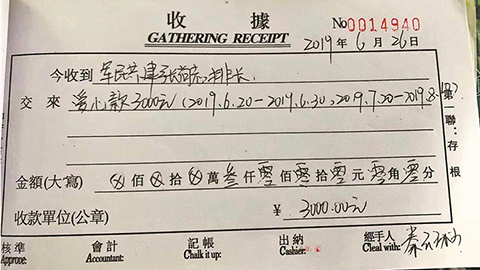 收 據
GATHERING RECEIPT
No 0014940
2019 年 6 月 26 日
今收到 军民共建张 排长.
交 來 爱心款3000元(2019.6.20-2019.6.30, 2019.7.20-2019.8.
金額(大寫) ⊗ 佰 ⊗ 拾 ⊗ 萬 叁 仟 零 佰 零 拾 零 元 零 角 零 分
¥ 3000.00元
收款單位(公章)
第二聯:存根
核準 Apprope:
會計 Accountant:
記帳 Chalk it up:
出納 Cashier:
經手人 Cleal with: 秦